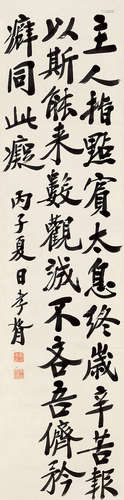 主人指點賓太息終歲辛苦報
以斯能来數觀誠不吝吾儕矜
癖同此癡 丙子夏日孝胥